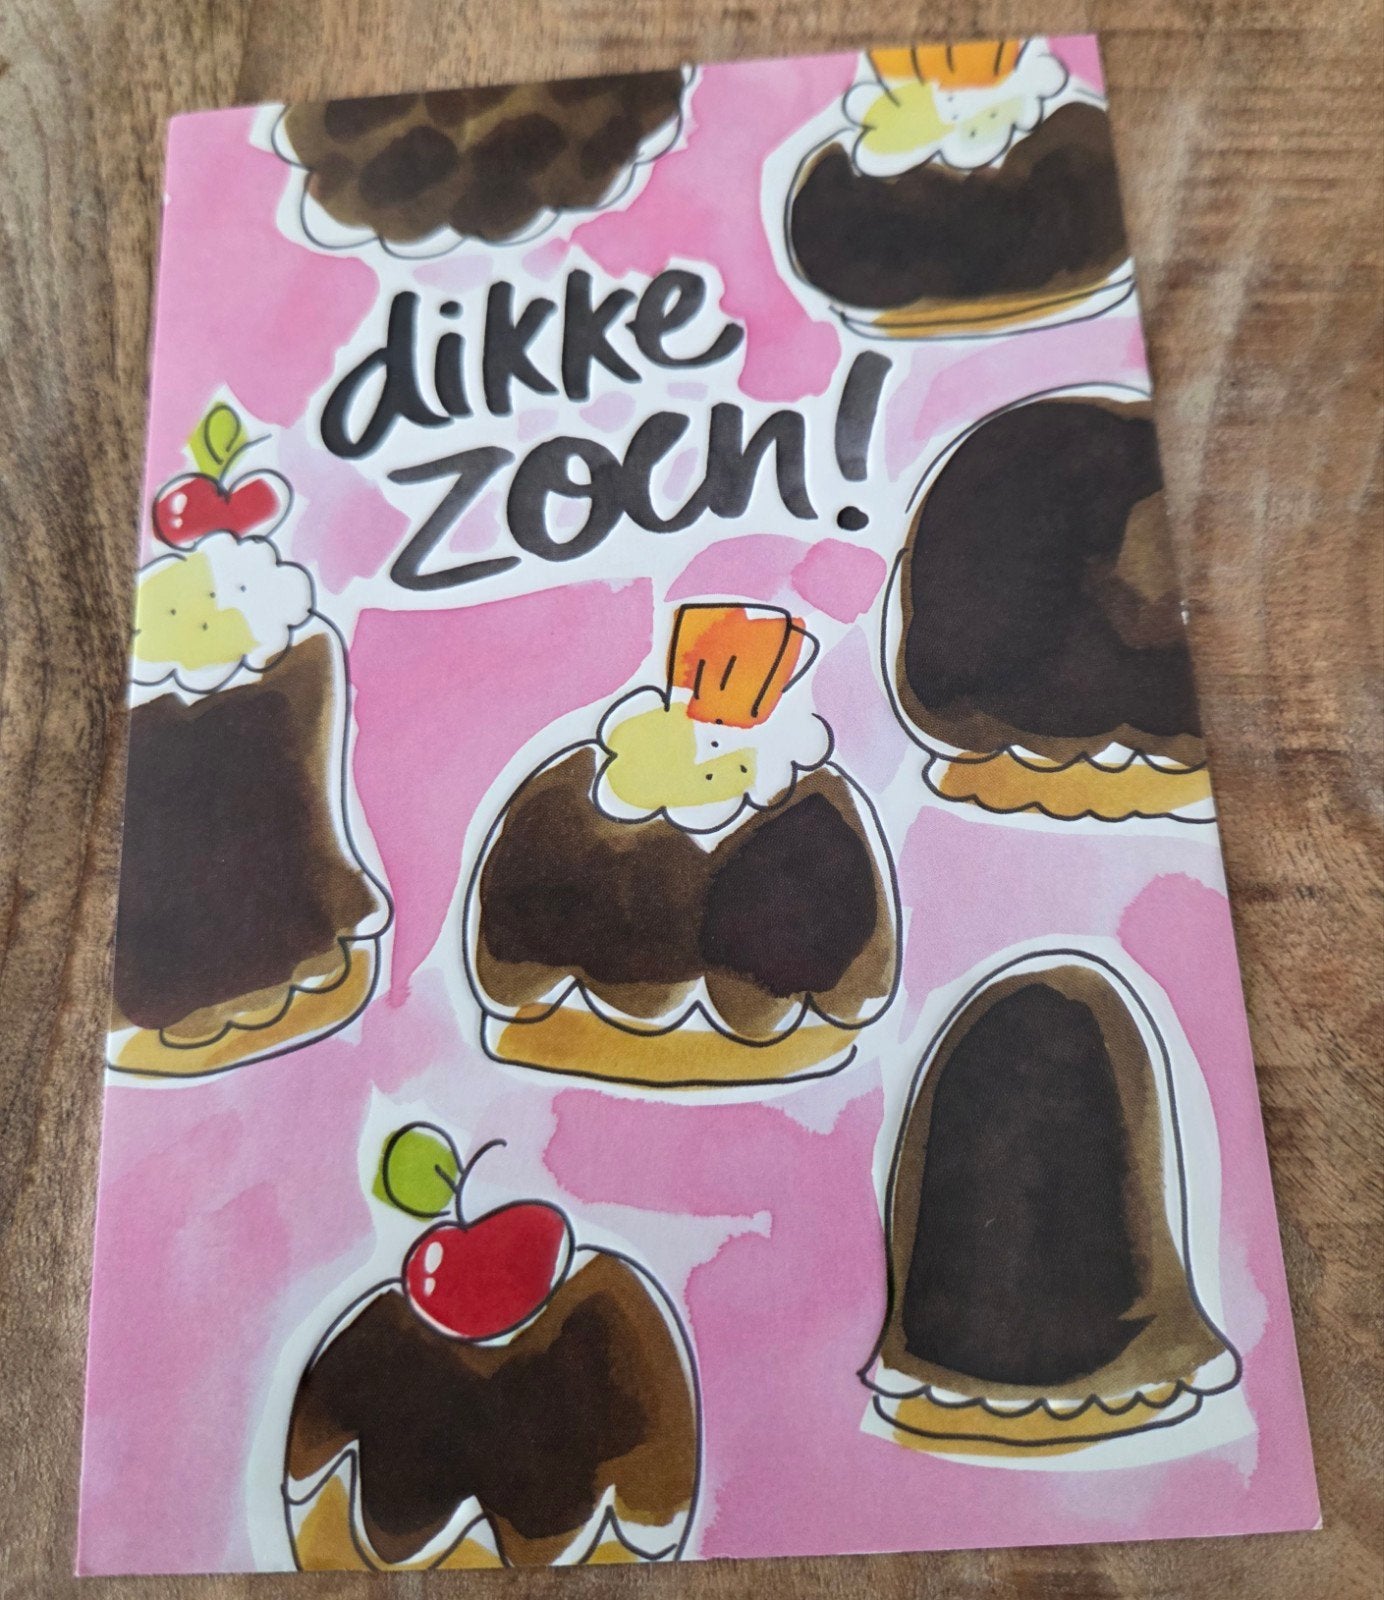 dikke
zoen!